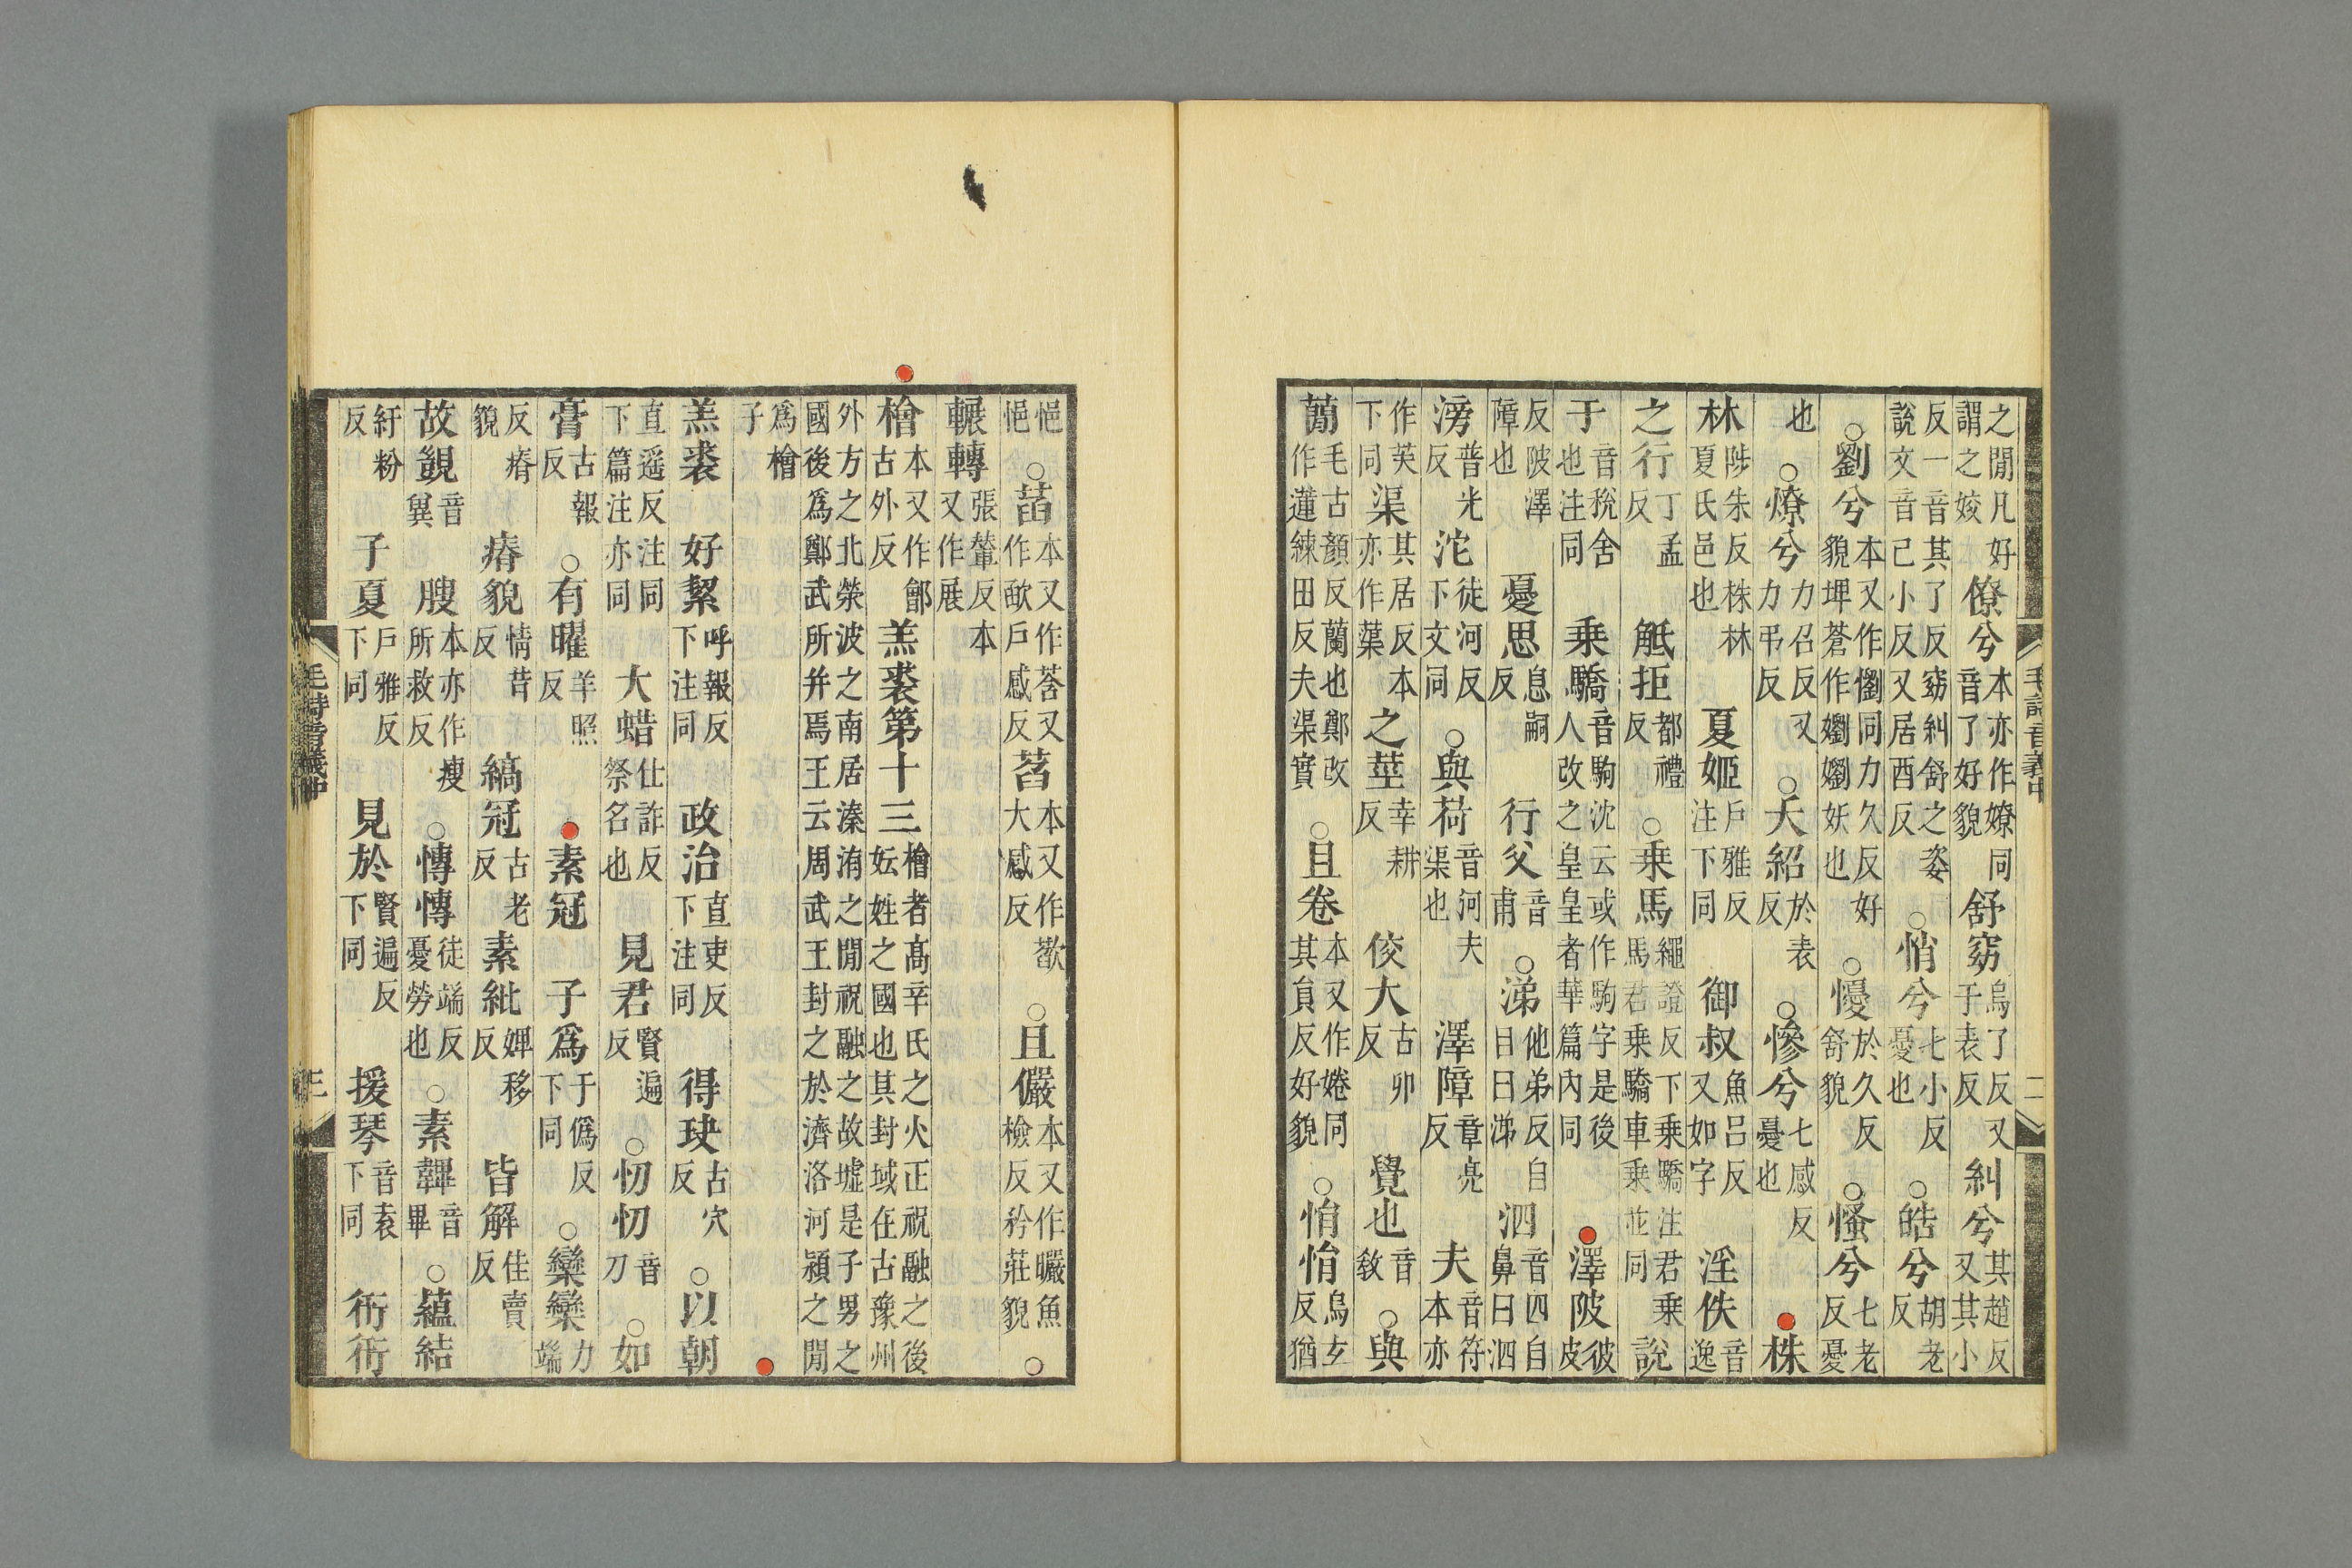 之閒凡好謂之姣 僚兮本亦作嫽同音了好貌 舒窈烏了反又于表反 糾兮其趙反又其小
反一音其了反窈糾舒之姿說文音己小反又居酉反 ○悄兮七小反憂也 ○皓兮胡老反
○劉兮本又作懰同力久反好貌埤蒼作嬼嬼妖也 ○懮於久反舒貌 ○慅兮七老反憂
也 ○燎兮力召反又力弔反 ○夭紹於表反 ○慘兮七感反憂也 株
林陟朱反株林夏氏邑也 夏姬戶雅反注下同 御叔魚呂反又如字 淫佚音逸
之行丁孟反 觝拒都禮反 ○乗馬繩證反下乗驕注君乗馬君乗驕車乗並同 說
于音稅舍也注同 乗驕音駒沈云或作駒字是後人改之皇皇者華篇內同 澤陂彼皮
反陂澤障也 憂思息嗣反 行父音甫 ○涕他弟反自目曰涕 泗音四自鼻曰泗
滂普光反 沱徒河反下文同 ○與荷音河夫渠也 澤障章亮反 夫音符本亦
作芙下同 渠其居反本亦作蕖 之莖幸耕反 佼大古卯反 覺也音敎 ○與
蕑毛古顏反蘭也鄭改作蓮練田反夫渠實 ○且卷本又作婘同其負反好貌 ○悁悁烏玄反猶
毛詩音義中 二
悒悒 ○菡本又作莟又作歄戶感反 萏本又作歡大感反 ○且儼本又作曮魚檢反矜莊貌 ○
輾轉張輦反本又作展
檜本又作鄶古外反 羔裘第十三檜者高辛氏之火正祝融之後妘姓之國也其封域在古豫州
外方之北滎波之南居溱洧之閒祝融之故墟是子男之國後爲鄭武所幷焉王云周武王封之於濟洛河潁之閒
爲檜子
羔裘 好絜呼報反下注同 政治直吏反下注同 得玦古穴反 ○以朝
直遥反注同下篇注亦同 大蜡仕詐反祭名也 見君賢遍反 ○忉忉音刀 ○如
膏古報反 ○有曜羊照反 素冠 子爲于僞反下同 ○欒欒力端
反瘠貌 瘠貌情昔反 縞冠古老反 素紕婢移反 皆解佳賣反
故覬音兾 膄本亦作瘦所救反 ○慱慱徒端反憂勞也 ○素韠音畢 ○蘊結
紆粉反 子夏戶雅反下同 見於賢遍反下同 援琴音袁下同 衎衎
毛詩音義中 三